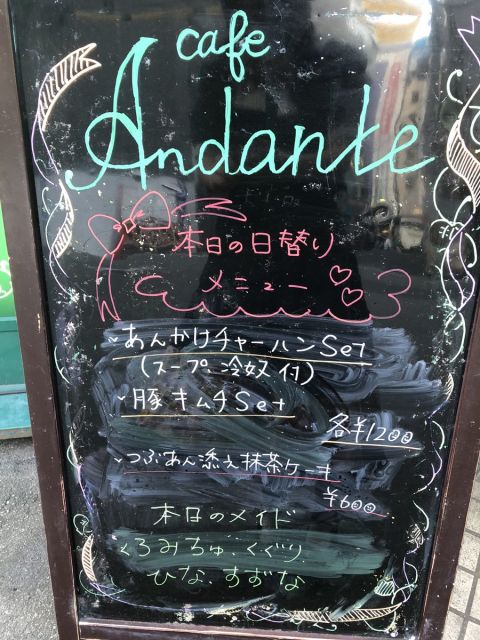 cafe
Andante
本日の日替り
メニュー
・あんかけチャーハンSet
(スープ、冷奴付)
・豚キムチSet
各¥1200
・つぶあん添え抹茶ケーキ
¥600
本日のメイド
くろみちゅ、くぐり、
ひな、すずな